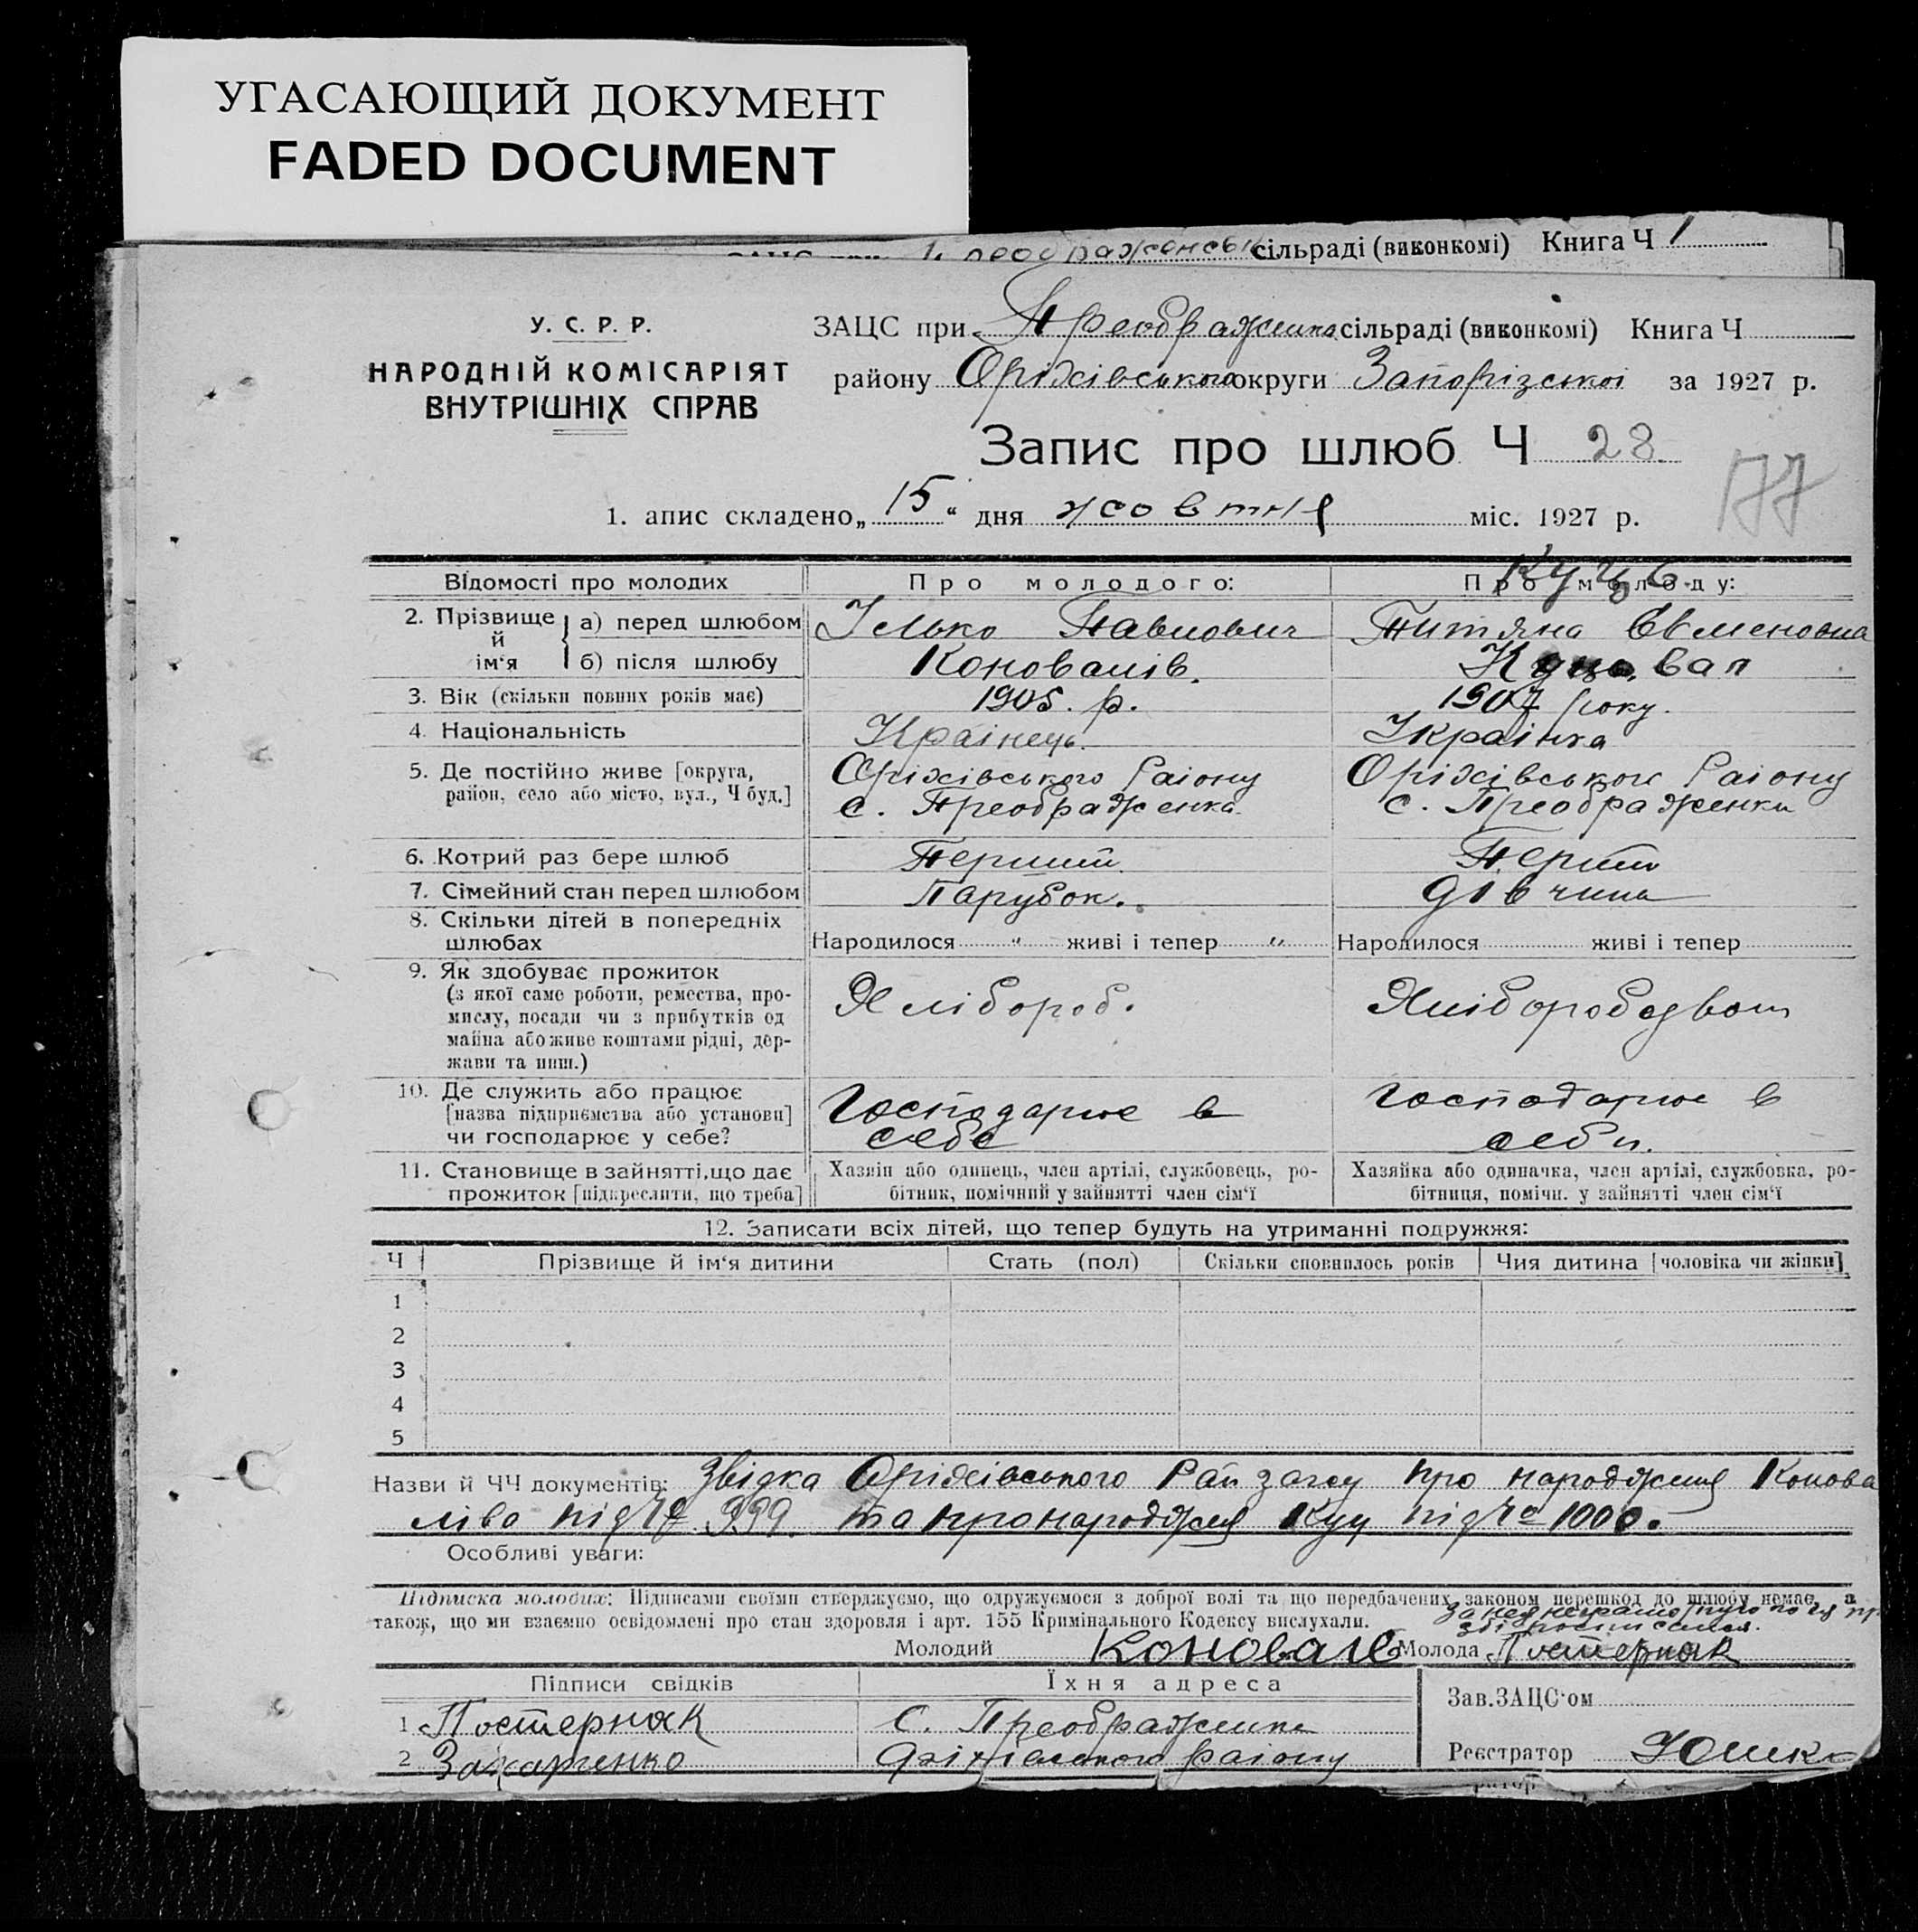 УГАСАЮЩИЙ ДОКУМЕНТ
FADED DOCUMENT
сільраді (виконкомі) Книга Ч 1
У. С. Р. Р.
НАРОДНІЙ КОМІСАРІЯТ
ВНУТРІШНІХ СПРАВ
ЗАЦС при Преображенка сільраді (виконкомі) Книга Ч
району Оріхівського округи Запорізської за 1927 р.
Запис про шлюб Ч 28
177
1. апис складено „ 15 “ дня жовтня міс. 1927 р.
Відомості про молодих Про молодого: Про молоду:
Куць
2. Прізвище й ім‘я а) перед шлюбом Ілько Павлович Титяна Євменовна
б) після шлюбу Коновалів.
3. Вік (скільки повних років має) 1905. р. 1907 року.
4. Національність Українець. Українка
5. Де постійно живе [округа, Оріхівського Раіону Оріхівського Раіону
район, село або місто, вул., Ч буд.] с. Преображенка с. Преображенки
6. Котрий раз бере шлюб Перший Перший
7. Сімейний стан перед шлюбом Парубок. дівчина
8. Скільки дітей в попередніх
шлюбах Народилося „ живі і тепер „ Народилося живі і тепер
9. Як здобуває прожиток
(з якої саме роботи, ремества, про-
мислу, посади чи з прибутків од Хлібороб.
майна або живе коштами рідні, дер-
жави та инш.)
10. Де служить або працює
[назва підприємства або установи] Господарює в Господарює в
чи господарює у себе? себе себи.
11. Становище в зайнятті, що дає Хазяїн або одинець, член артілі, службовець, ро- Хазяйка або одиначка, член артілі, службовка, ро-
прожиток [підкреслити, що треба] бітник, помічний у зайнятті член сім‘ї бітниця, помічн. у зайнятті член сім‘ї
12. Записати всіх дітей, що тепер будуть на утриманні подружжя:
Ч Прізвище й ім‘я дитини Стать (пол) Скільки сповнилось років Чия дитина [чоловіка чи жінки]
1
2
3
4
5
Назви й ЧЧ документів: Звідка Оріхівського Рай загсу про народження Конова
ліва під № 999. та про народження Куц під № 1000.
Особливі уваги:
Підписка молодих: Підписами своїми стверджуємо, що одружуємося з доброї волі та що передбачених законом перешкод до шлюбу немає, а
також, що ми взаємно освідомлені про стан здоровля і арт. 155 Кримінального Кодексу вислухали.
Молодий Коновалів Молода Постернак
Підписи свідків Їхня адреса
Зав. ЗАЦС‘ом
1 Постернак с. Преображенка
2 Захарченко Оріхівського раіону Реєстратор